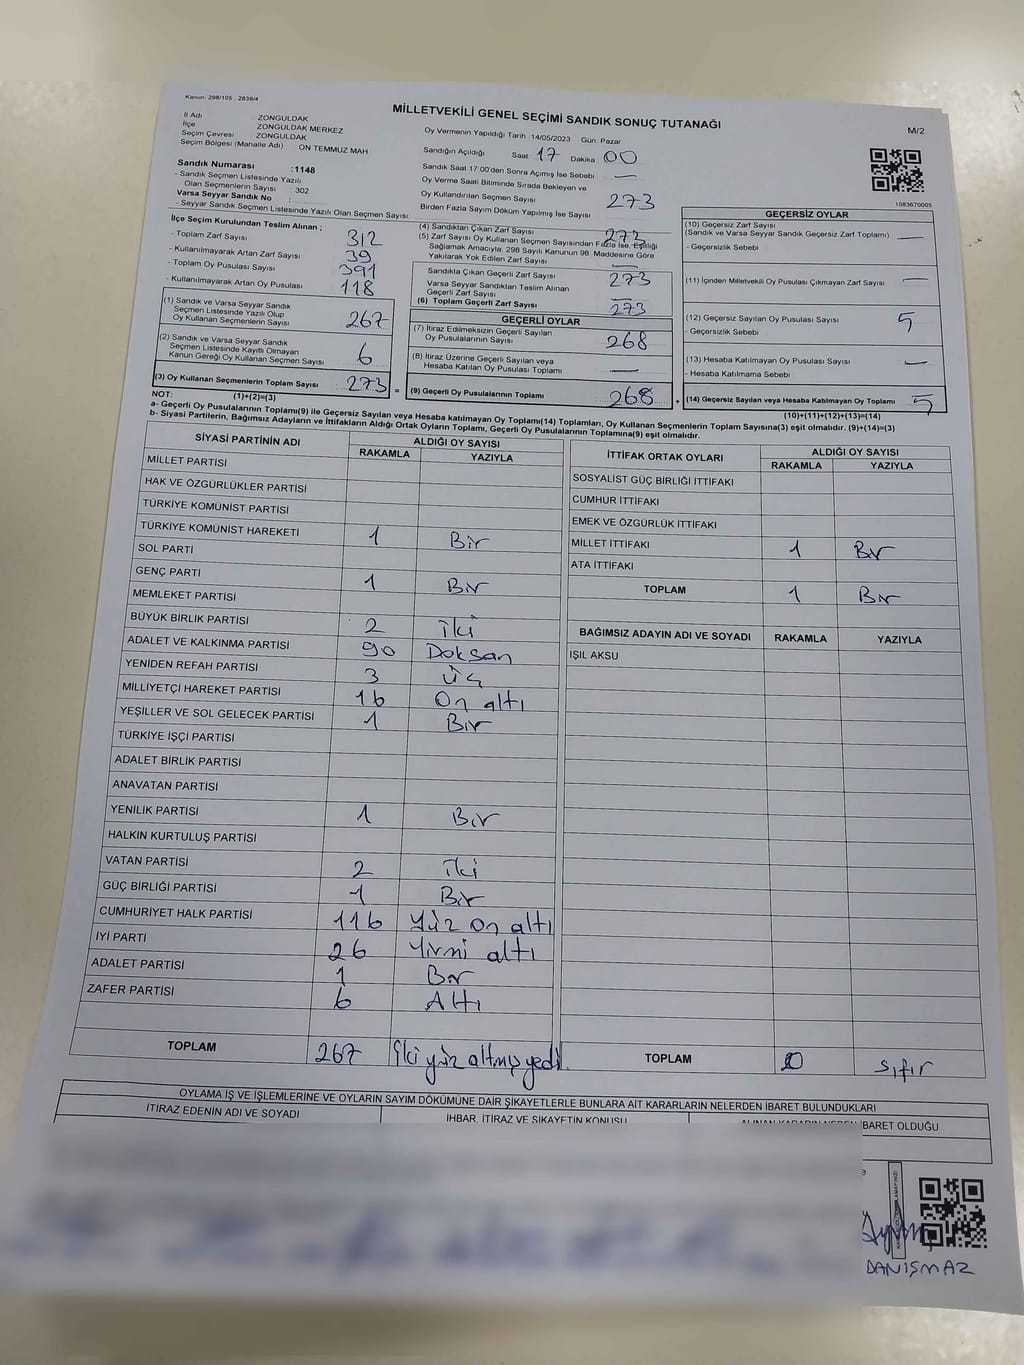 Kanun, 298/105 , 2839/4
MİLLETVEKİLİ GENEL SEÇİMİ SANDIK SONUÇ TUTANAĞI
M/2
İl Adı ZONGULDAK
İlçe ZONGULDAK MERKEZ
Seçim Çevresi ZONGULDAK
Seçim Bölgesi (Mahalle Adı) ON TEMMUZ MAH
Sandık Numarası :1148
- Sandık Seçmen Listesinde Yazılı
Olan Seçmenlerin Sayısı : 302
Varsa Seyyar Sandık No :
- Seyyar Sandık Seçmen Listesinde Yazılı Olan Seçmen Sayısı:
Oy Vermenin Yapıldığı Tarih :14/05/2023 Gün: Pazar
Sandığın Açıldığı Saat 17 Dakika 00
Sandık Saat 17:00'den Sonra Açılmış İse Sebebi : —
Oy Verme Saati Bitiminde Sırada Bekleyen ve
Oy Kullandırılan Seçmen Sayısı 273
Birden Fazla Sayım Döküm Yapılmış İse Sayısı
1083670005
İlçe Seçim Kurulundan Teslim Alınan ;
- Toplam Zarf Sayısı 312
- Kullanılmayarak Artan Zarf Sayısı 39
- Toplam Oy Pusulası Sayısı 391
- Kullanılmayarak Artan Oy Pusulası 118
(1) Sandık ve Varsa Seyyar Sandık
Seçmen Listesinde Yazılı Olup
Oy Kullanan Seçmenlerin Sayısı 267
(2) Sandık ve Varsa Seyyar Sandık
Seçmen Listesinde Kayıtlı Olmayan
Kanun Gereği Oy Kullanan Seçmen Sayısı 6
(3) Oy Kullanan Seçmenlerin Toplam Sayısı 273 =
(4) Sandıktan Çıkan Zarf Sayısı 273
(5) Zarf Sayısı Oy Kullanan Seçmen Sayısından Fazla İse, Eşitliği
Sağlamak Amacıyla, 298 Sayılı Kanunun 98. Maddesine Göre
Yakılarak Yok Edilen Zarf Sayısı —
Sandıkta Çıkan Geçerli Zarf Sayısı 273
Varsa Seyyar Sandıktan Teslim Alınan
Geçerli Zarf Sayısı —
(6) Toplam Geçerli Zarf Sayısı 273
GEÇERLİ OYLAR
(7) İtiraz Edilmeksizin Geçerli Sayılan
Oy Pusulalarının Sayısı 268
(8) İtiraz Üzerine Geçerli Sayılan veya
Hesaba Katılan Oy Pusulası Toplamı —
(9) Geçerli Oy Pusulalarının Toplamı 268 +
GEÇERSİZ OYLAR
(10) Geçersiz Zarf Sayısı
(Sandık ve Varsa Seyyar Sandık Geçersiz Zarf Toplamı) —
- Geçersizlik Sebebi
(11) İçinden Milletvekili Oy Pusulası Çıkmayan Zarf Sayısı —
(12) Geçersiz Sayılan Oy Pusulası Sayısı 5
- Geçersizlik Sebebi
(13) Hesaba Katılmayan Oy Pusulası Sayısı —
- Hesaba Katılmama Sebebi
(14) Geçersiz Sayılan veya Hesaba Katılmayan Oy Toplamı 5
NOT: (1)+(2)=(3) (10)+(11)+(12)+(13)=(14)
a- Geçerli Oy Pusulalarının Toplamı(9) ile Geçersiz Sayılan veya Hesaba katılmayan Oy Toplamı(14) Toplamları, Oy Kullanan Seçmenlerin Toplam Sayısına(3) eşit olmalıdır. (9)+(14)=(3)
b- Siyasi Partilerin, Bağımsız Adayların ve İttifakların Aldığı Ortak Oyların Toplamı, Geçerli Oy Pusulalarının Toplamına(9) eşit olmalıdır.
SİYASİ PARTİNİN ADI ALDIĞI OY SAYISI
RAKAMLA YAZIYLA
MİLLET PARTİSİ
HAK VE ÖZGÜRLÜKLER PARTİSİ
TÜRKİYE KOMÜNİST PARTİSİ
TÜRKİYE KOMÜNİST HAREKETİ 1 Bir
SOL PARTİ
GENÇ PARTİ 1 Bir
MEMLEKET PARTİSİ
BÜYÜK BİRLİK PARTİSİ 2 İki
ADALET VE KALKINMA PARTİSİ 90 Doksan
YENİDEN REFAH PARTİSİ 3 Üç
MİLLİYETÇİ HAREKET PARTİSİ 16 On altı
YEŞİLLER VE SOL GELECEK PARTİSİ 1 Bir
TÜRKİYE İŞÇİ PARTİSİ
ADALET BİRLİK PARTİSİ
ANAVATAN PARTİSİ
YENİLİK PARTİSİ 1 Bir
HALKIN KURTULUŞ PARTİSİ
VATAN PARTİSİ 2 İki
GÜÇ BİRLİĞİ PARTİSİ 1 Bir
CUMHURİYET HALK PARTİSİ 116 Yüz On altı
İYİ PARTİ 26 Yirmi altı
ADALET PARTİSİ 1 Bir
ZAFER PARTİSİ 6 Altı
TOPLAM 267 İki yüz altmış yedi.
İTTİFAK ORTAK OYLARI ALDIĞI OY SAYISI
RAKAMLA YAZIYLA
SOSYALİST GÜÇ BİRLİĞİ İTTİFAKI
CUMHUR İTTİFAKI
EMEK VE ÖZGÜRLÜK İTTİFAKI
MİLLET İTTİFAKI 1 Bir
ATA İTTİFAKI
TOPLAM 1 Bir
BAĞIMSIZ ADAYIN ADI VE SOYADI RAKAMLA YAZIYLA
IŞIL AKSU
TOPLAM 0 Sıfır
OYLAMA İŞ VE İŞLEMLERİNE VE OYLARIN SAYIM DÖKÜMÜNE DAİR ŞİKAYETLERLE BUNLARA AİT KARARLARIN NELERDEN İBARET BULUNDUKLARI
İTİRAZ EDENİN ADI VE SOYADI İHBAR, İTİRAZ VE ŞİKAYETİN KONUSU ALINAN KARARIN NEDEN İBARET OLDUĞU
DANIŞMAZ